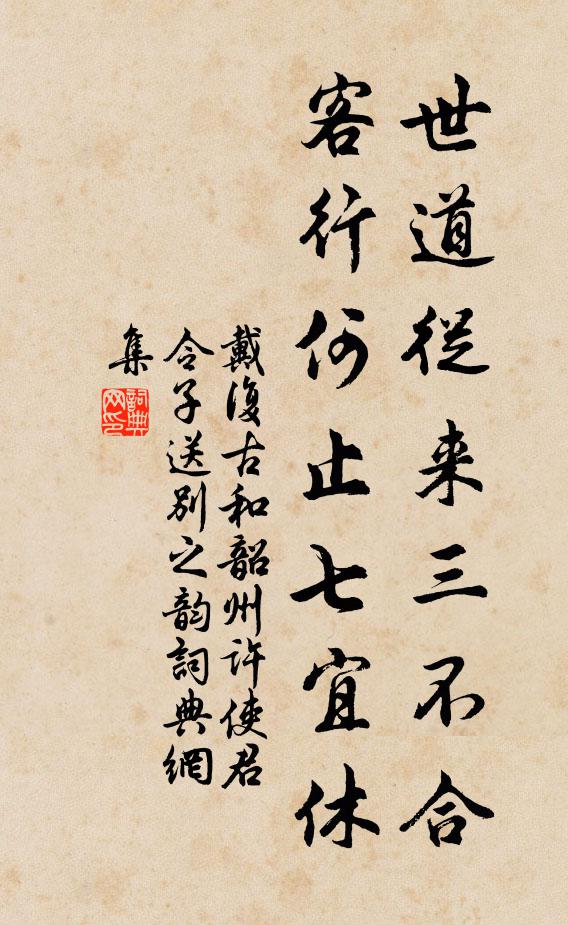 世道從来三不合
客行何止七宜休
戴復古和韶州許使君
令子送别之韵詞典網
集
詞典
网印